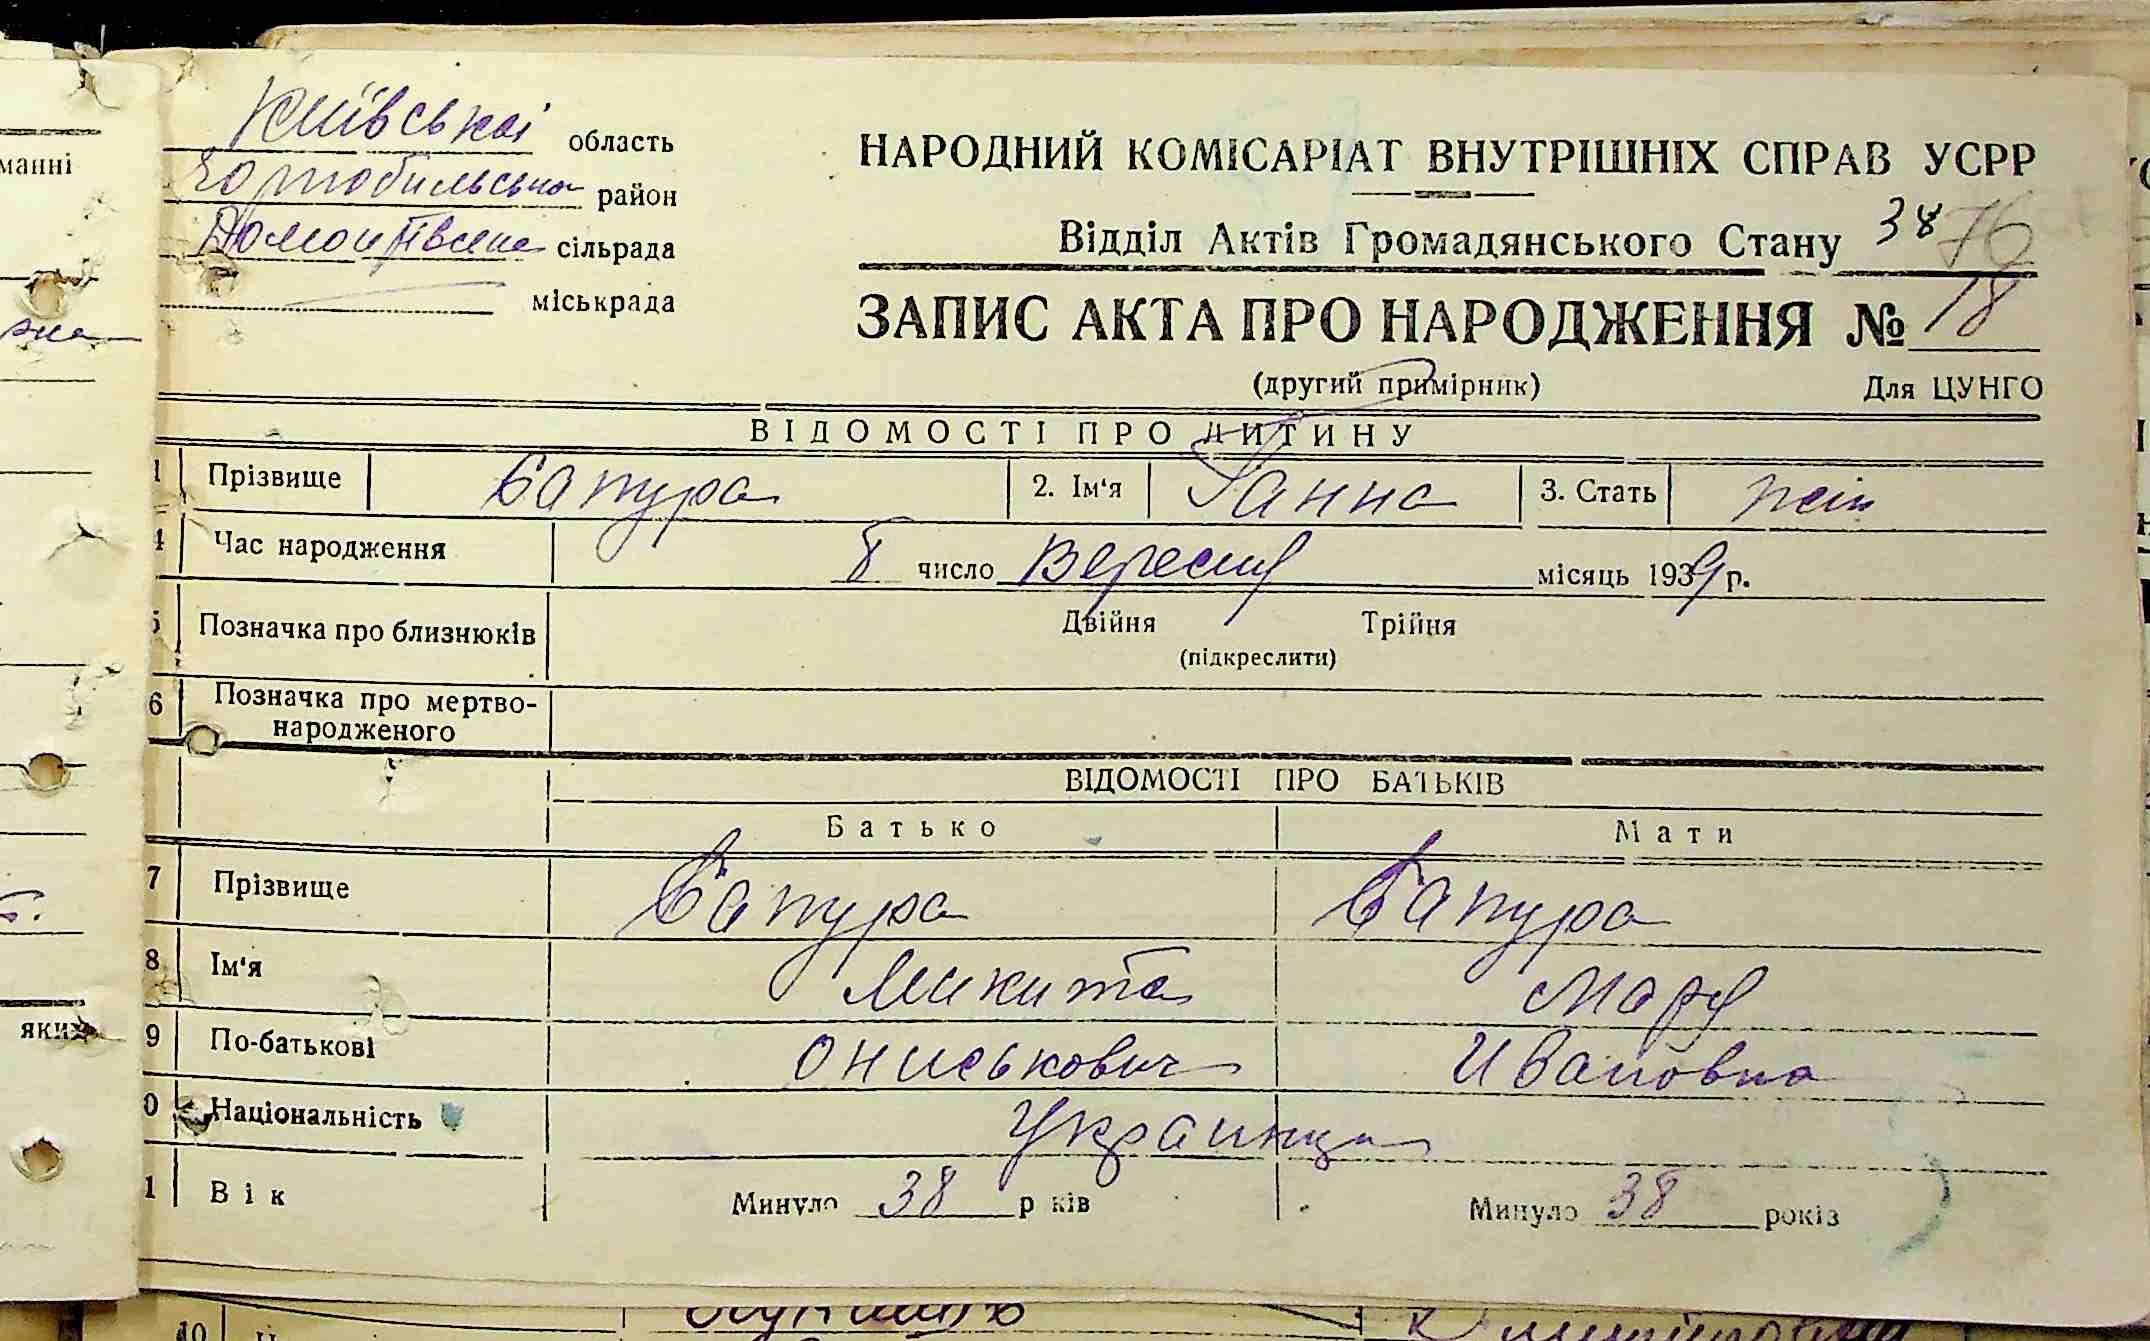 Київської область
Чорнобильська район
сільрада
міськрада
НАРОДНИЙ КОМІСАРІАТ ВНУТРІШНІХ СПРАВ УСРР
Відділ Актів Громадянського Стану 38 76
ЗАПИС АКТА ПРО НАРОДЖЕННЯ № 18
(другий примірник) Для ЦУНГО
ВІДОМОСТІ ПРО ДИТИНУ
1 Прізвище Сапура 2. Ім'я Ганна 3. Стать жін
4 Час народження 8 число Вересня місяць 1939 р.
5 Позначка про близнюків Двійня Трійня
(підкреслити)
6 Позначка про мертво-
народженого
ВІДОМОСТІ ПРО БАТЬКІВ
Батько Мати
7 Прізвище Сапура Сапура
8 Ім'я Микита Маря
9 По-батькові Ониськович Ивановна
0 Національність Украинци
1 Вік Минуло 38 р ків Минуло 38 років
манні
яких
10